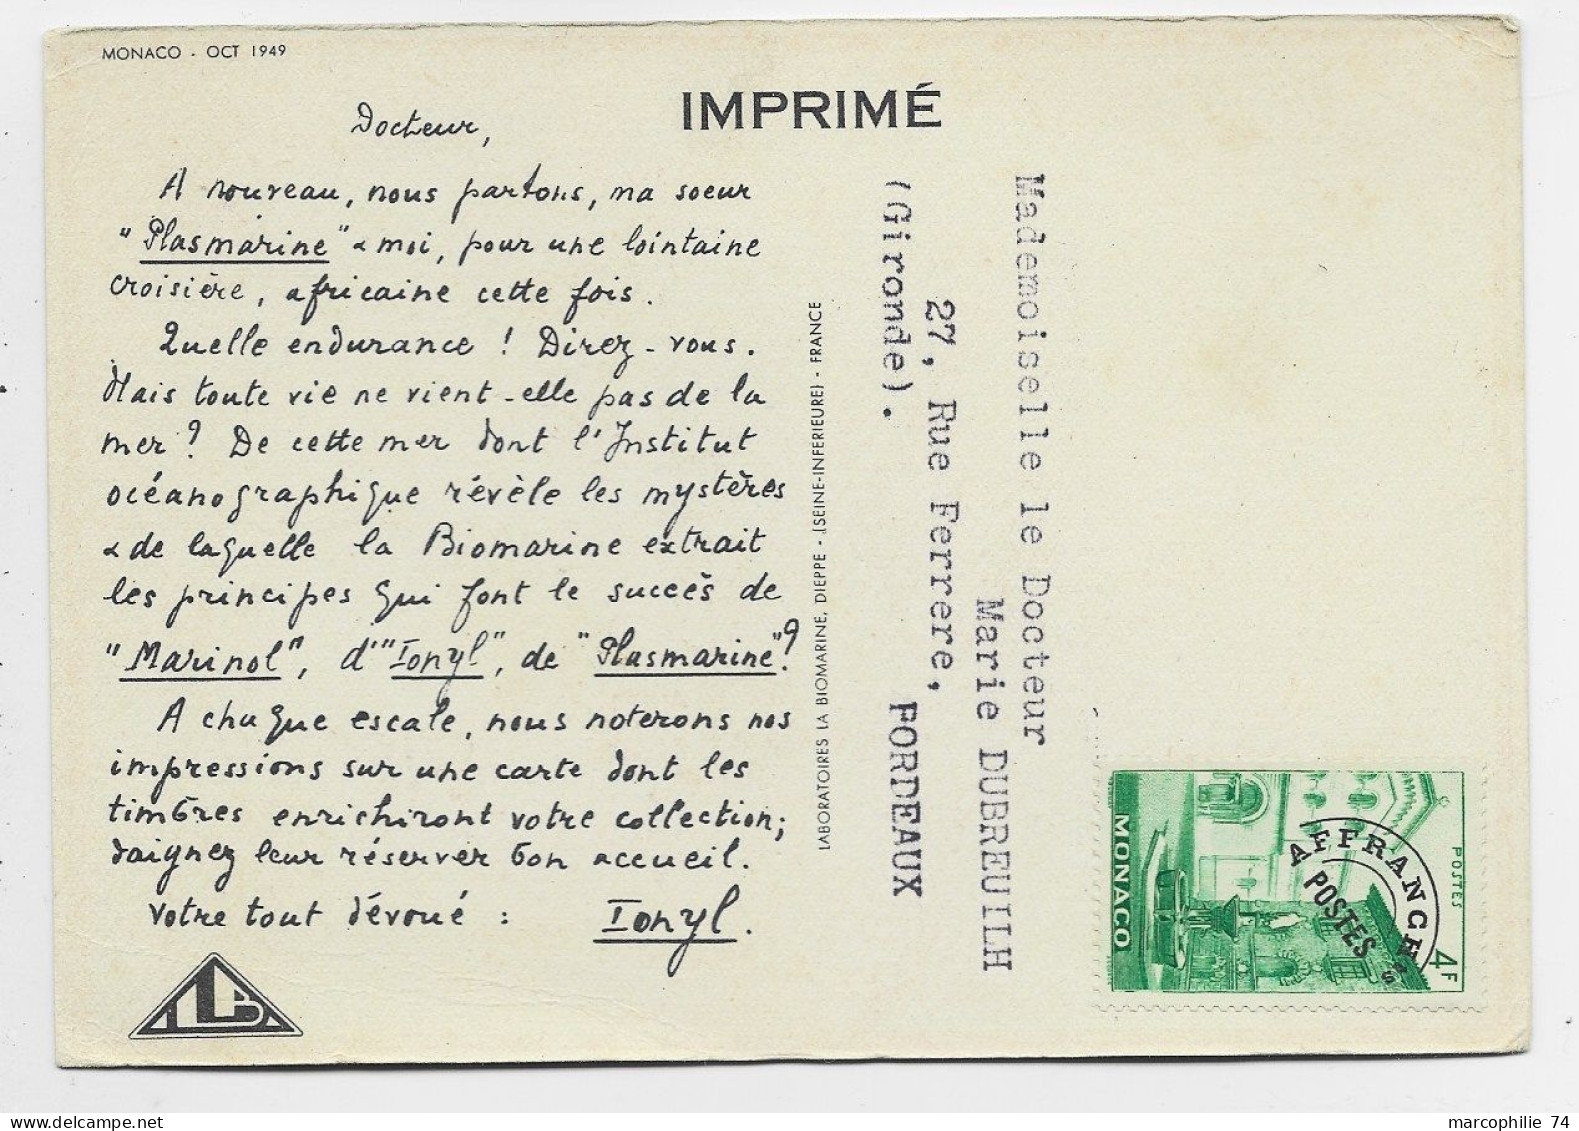 MONACO - OCT 1949
IMPRIMÉ
Docteur,
A nouveau, nous partons, ma soeur
"Plasmarine" & moi, pour une lointaine
croisière, africaine cette fois.
Quelle endurance ! Direz-vous.
Mais toute vie ne vient-elle pas de la
mer ? De cette mer dont l'Institut
océanographique révèle les mystères
& de laquelle la Biomarine extrait
les principes qui font le succès de
"Marinol", d'"Ionyl", de "Plasmarine"?
A chaque escale, nous noterons nos
impressions sur une carte dont les
timbres enrichiront votre collection;
daignez leur réserver bon accueil.
Votre tout dévoué : Ionyl.
LB
LABORATOIRES LA BIOMARINE, DIEPPE - (SEINE-INFERIEURE) - FRANCE
Mademoiselle le Docteur
Marie DUBREUILH
27, Rue Ferrere,
FORDEAUX
(Gironde).
POSTES
4F
MONACO
AFFRANCHts
POSTES
marcophilie 74